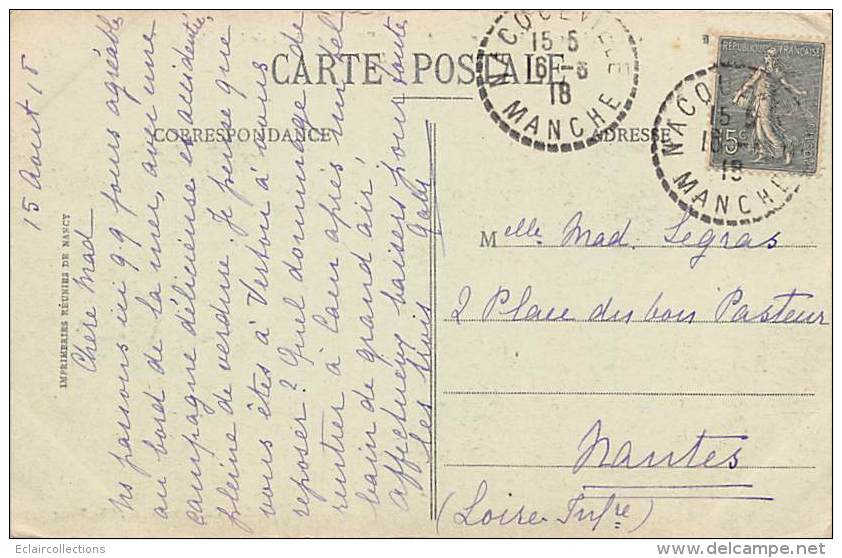 CARTE POSTALE
CORRESPONDANCE
ADRESSE
IMPRIMERIES RÉUNIES DE NANCY
15 Aout 18
Chère Mad
ns passons ici qq jours agréables
au bord de la mer, avec une
campagne délicieuse et accidentée,
pleine de verdure. Je pense que
vous êtes à Vertou à vous
reposer ? Quel dommage de
rentrer à Caen après un tel
bain de grand air,
affectueux baisers pour toute
les trois Gaby
Melle Mad. Legras
2 Place du bon Pasteur
Nantes
(Loire Infre)
NACQUEVILLE
15-5
16-8
18
MANCHE
REPUBLIQUE FRANÇAISE
15c
NACQU
15
16
18
MANCHE
Eclaircollections
©delcampe.net